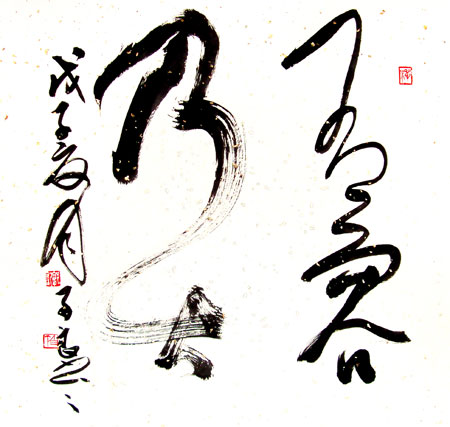 有容
乃大
戊子夏月